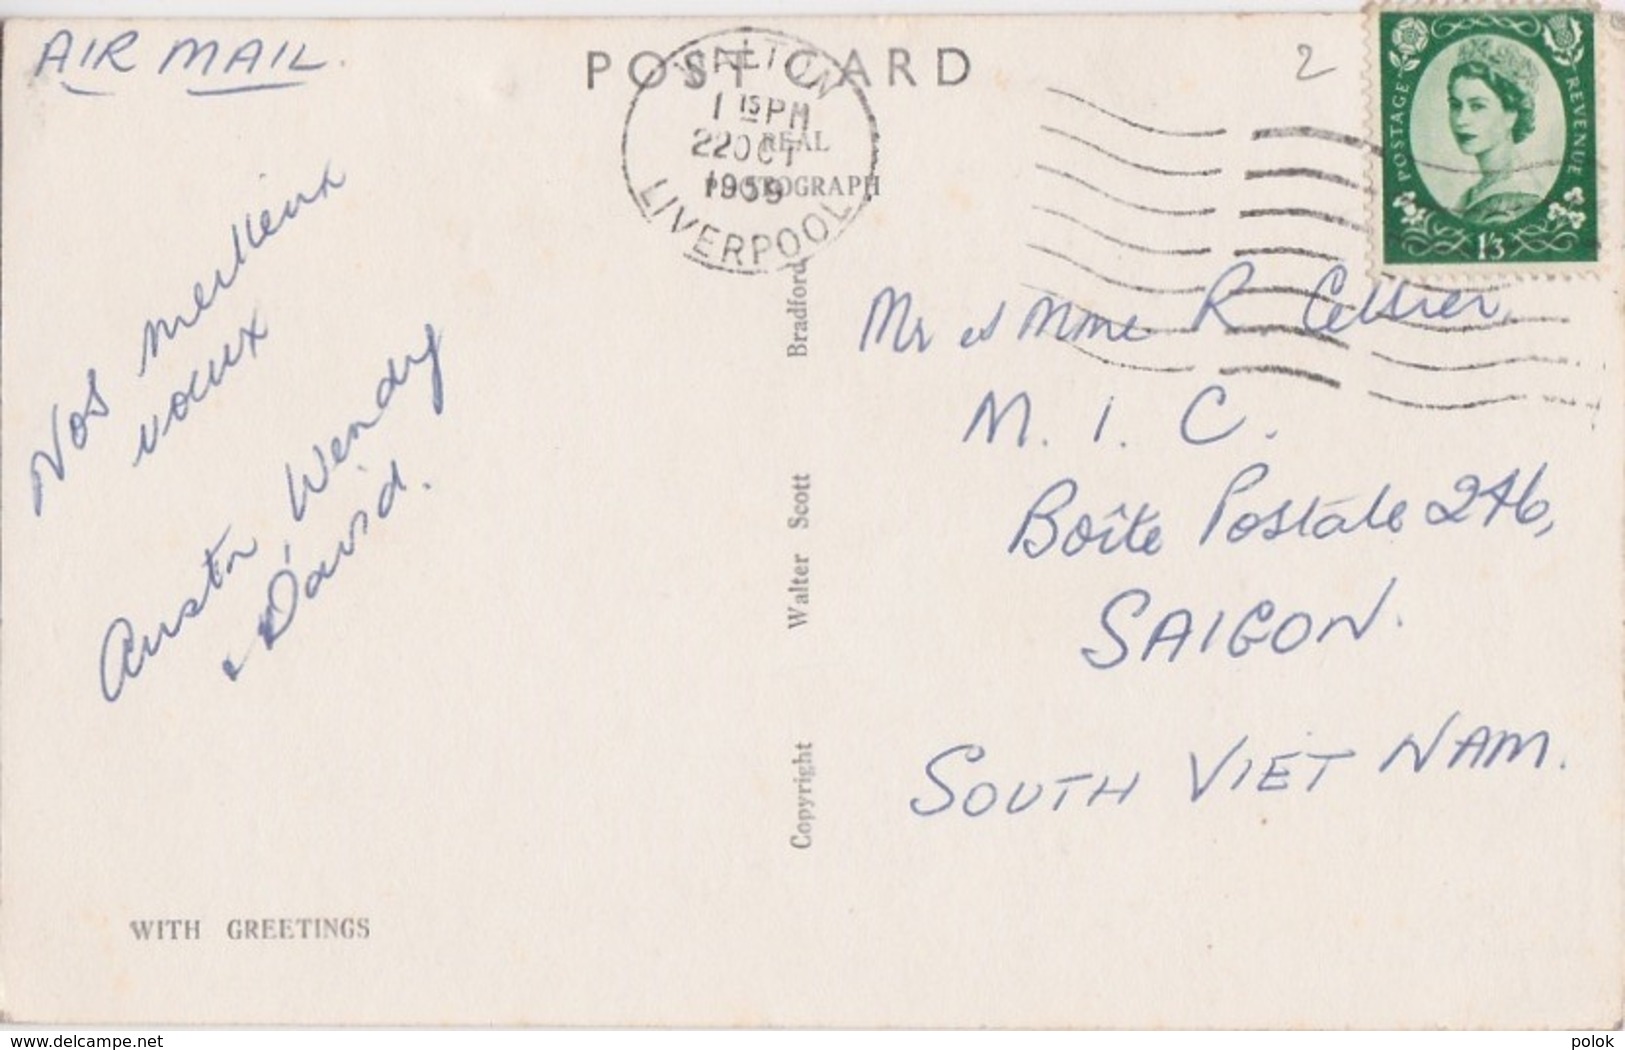 AIR MAIL.
POST CARD
2
WALTON
1 15 PM
22 OCT
1959
LIVERPOOL
REAL
PHOTOGRAPH
POSTAGE REVENUE
1/3
Nos meilleux
voeux
Austin, Wendy
& David.
Mr et Mme R Cellier,
M. I. C.
Boîte Postale 246,
SAIGON.
SOUTH VIET NAM.
Copyright Walter Scott Bradford
WITH GREETINGS
delcampe.net
polok